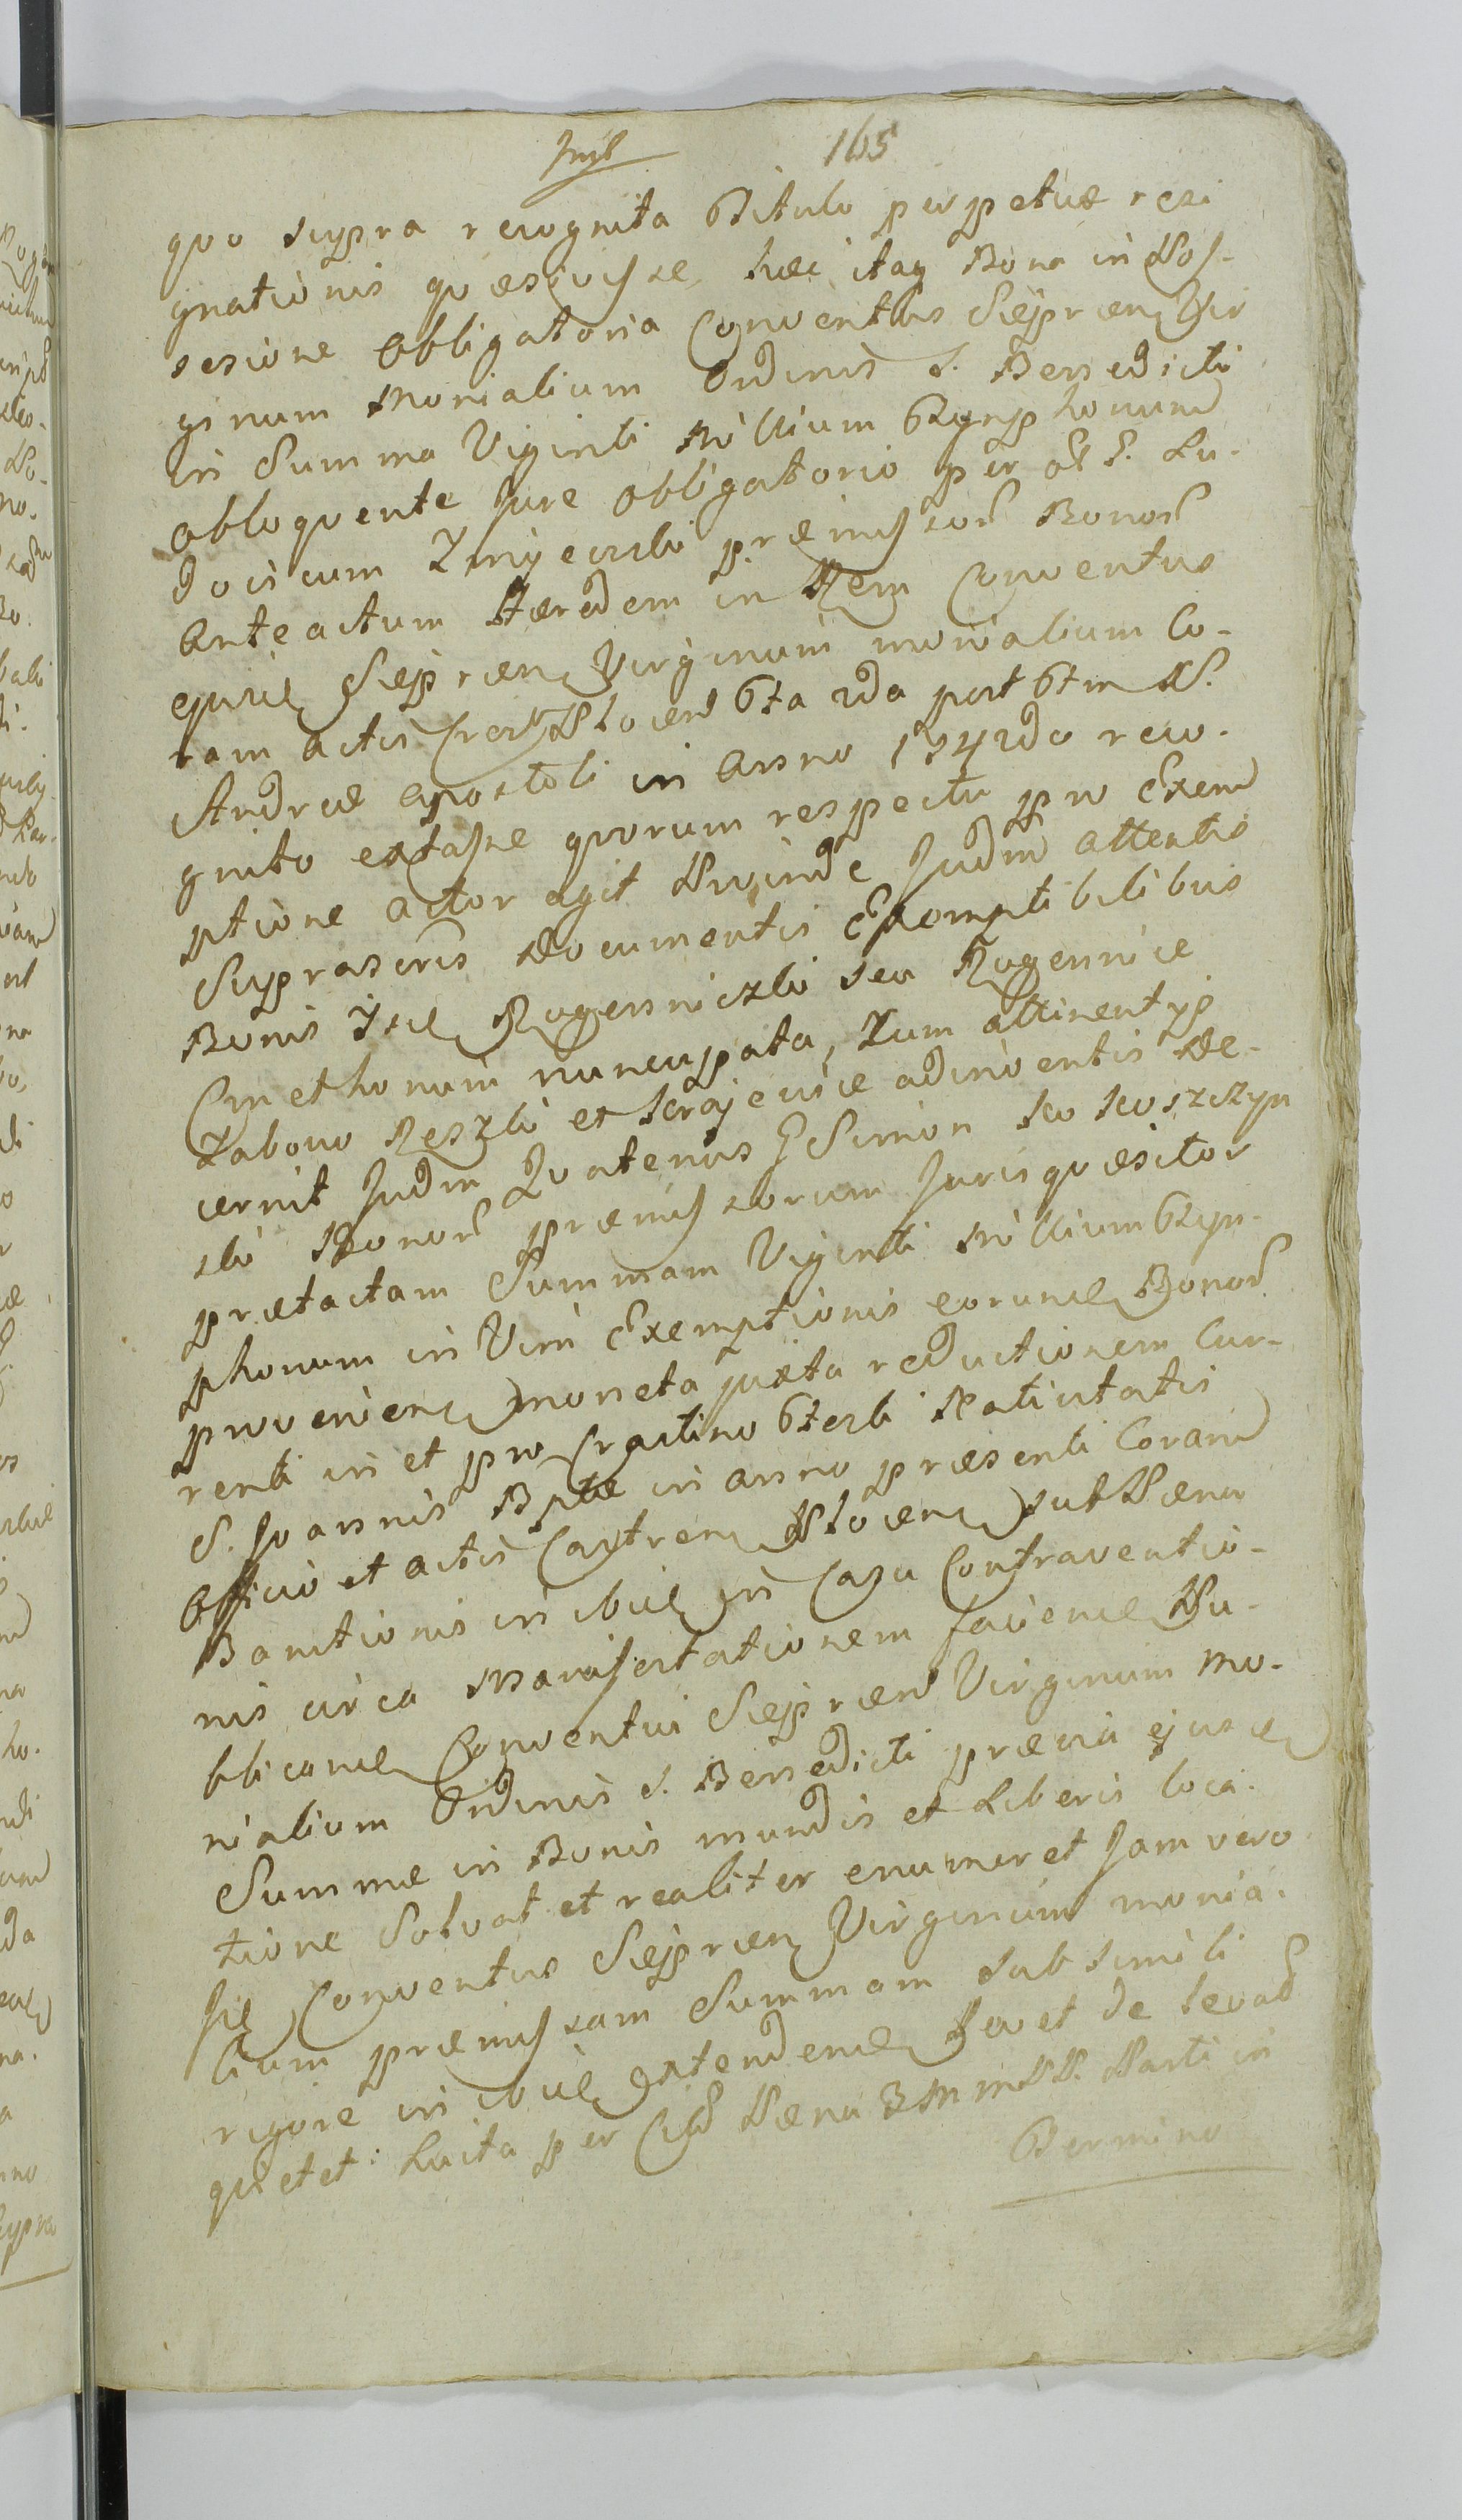 165
quo supra recognita Titulo perpetuæ resi
gnationis quæsivisse, hæc itaq Bona in Pos-
sesione obligatoria Conventus Sieprcen Vir
ginum Monialium Ordinis S. Benedicti
in Summa Viginti Millium Tynphonum
abloquente Jure obligatorio per olt. Lu-
dovicum Zmijewski præmissor Bonor
anteactum Hæredem in Rem Conventus
ejusd Sieprcen Virginum monialium Co-
ram actis Plocen 6ta 2da post Ftm S.
Andreæ Apostoli in Anno 1742do reco-
gnito extasse quorum respectu pro Exem
ptione actor agit Proinde Judm attentis
Suprascris Documentis Exemptibilibus
Bonis Rogenniczki seu Rogennice
Cmethonum nuncupata, Tum attinentys
Zabowo Reszki et adinventis De-
cernit Judm Quatenus G Simon Koskoszczyn
ski Bonor præmissorum Jurisquæsitor
prætactam Summam Viginti Millium Tyn-
phonum in Vim Exemptionis eorund Bonor
provenien moneta juxta reductionem Cur-
renti in et pro Crastino Festi Nativitatis
S. Joannis Bptæ in anno præsenti Coram
Officio et actis Castren Plocen sub Pæna
Bannitionis in in Casu Contraventio-
nis circa Manifestationem faciend Pu-
blicand Conventui Sieprcen Virginum Mo-
nialium Ordinis S. Benedicti prævia ejusd
Summæ in Bonis mundis et Liberis loca-
tione Solvat et realiter enumeret Jam vero
Conventus Sieprcen Virginum monia-
lium præmissam Summam sub simili
rigore in extendend levet de levad
quietet: Luita per Pæna 3 M mPP. Parti in
Termino